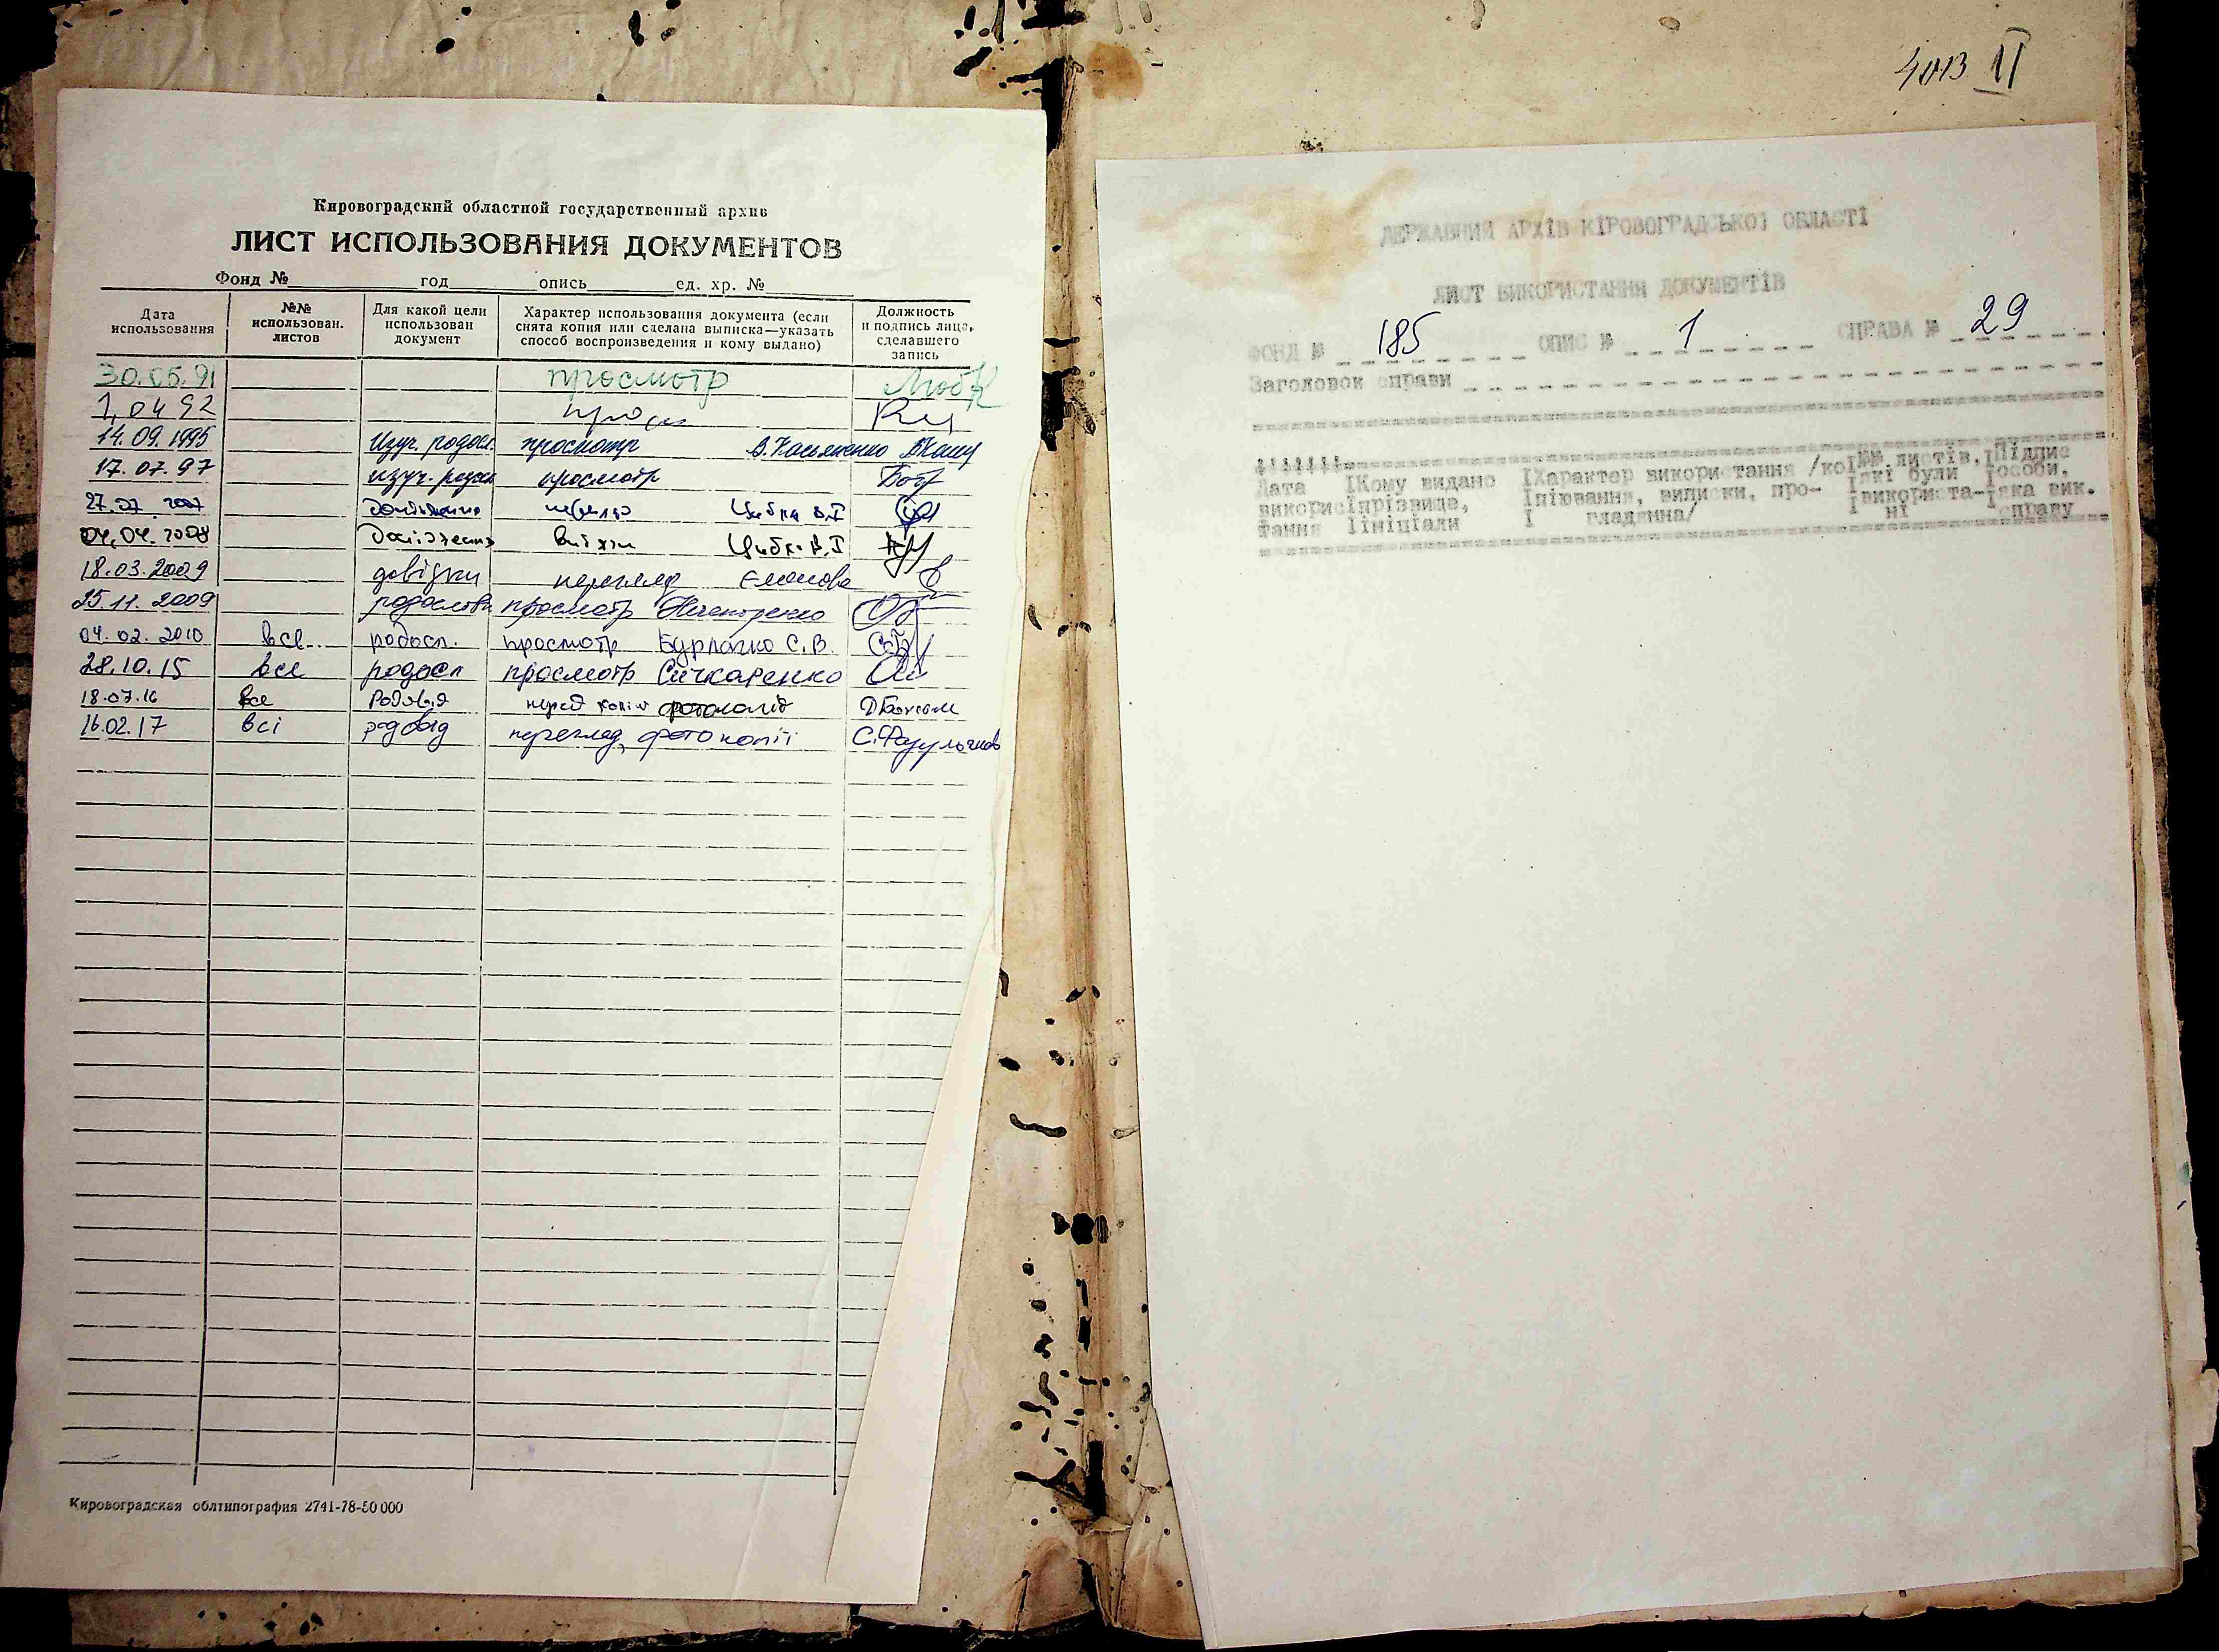 Кировоградский областной государственный архив
ЛИСТ ИСПОЛЬЗОВАНИЯ ДОКУМЕНТОВ
Фонд № год опись ед. хр. №
Дата использования
№№ использован. листов
Для какой цели использован документ
Характер использования документа (если снята копия или сделана выписка—указать способ воспроизведения и кому выдано)
Должность и подпись лица, сделавшего запись
30.05.91 просмотр
1.04 92
14.09.1995 Изуч. родосл. просмотр
17.07.97 изуч. просмотр
27.07. 2007 Цибка В.І
04.04.2008 Цибка В.І
18.03.2009 довідки перегляд
25.11.2009 просмотр
04.02.2010 все родосл. просмотр Бурлачко С.В.
28.10.15 все родосл просмотр Сичкаренко
18.07.16 все Родовід фотокопії
16.02.17 всі родовід перегляд, фотокопії
Кировоградская облтипография 2741-78-50 000
II
ДЕРЖАВНИЙ АРХІВ КІРОВОГРАДСЬКОЇ ОБЛАСТІ
ЛИСТ ВИКОРИСТАННЯ ДОКУМЕНТІВ
ФОНД № 185 ОПИС № 1 СПРАВА № 29
Заголовок справи
Дата використання
Кому видано прізвище, ініціали
Характер використання /копіювання, виписки, проглядання/
№№ листів, які були використані
Підпис особи, яка вик. справу